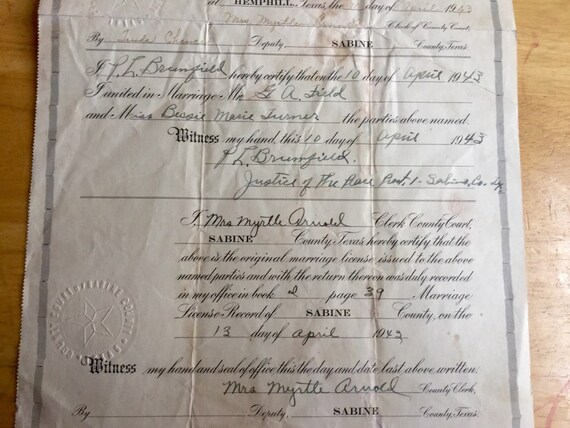 at HEMPHILL, Texas, the day of April 1943
Mrs. Myrtle Clerk of County Court,
By Deputy SABINE County, Texas
I P L Brumfield hereby certify that on the 10 day of April 1943
I united in Marriage Mr. G A Field
and Miss Bessie Marie Turner the parties above named.
Witness my hand, this 10 day of April 1943
P L Brumfield.
Justice of the Peace Prct. 1- Sabine, Co.
I, Mrs Myrtle Arnold Clerk County Court,
SABINE County, Texas hereby certify that the
above is the original marriage license issued to the above
named parties and with the return thereon was duly recorded
in my office in book page 39 Marriage
License Record of SABINE County, on the
13 day of April 1943
Witness my hand and seal of office, this the day and date last above written.
Mrs Myrtle Arnold County Clerk,
By Deputy, SABINE County, Texas.